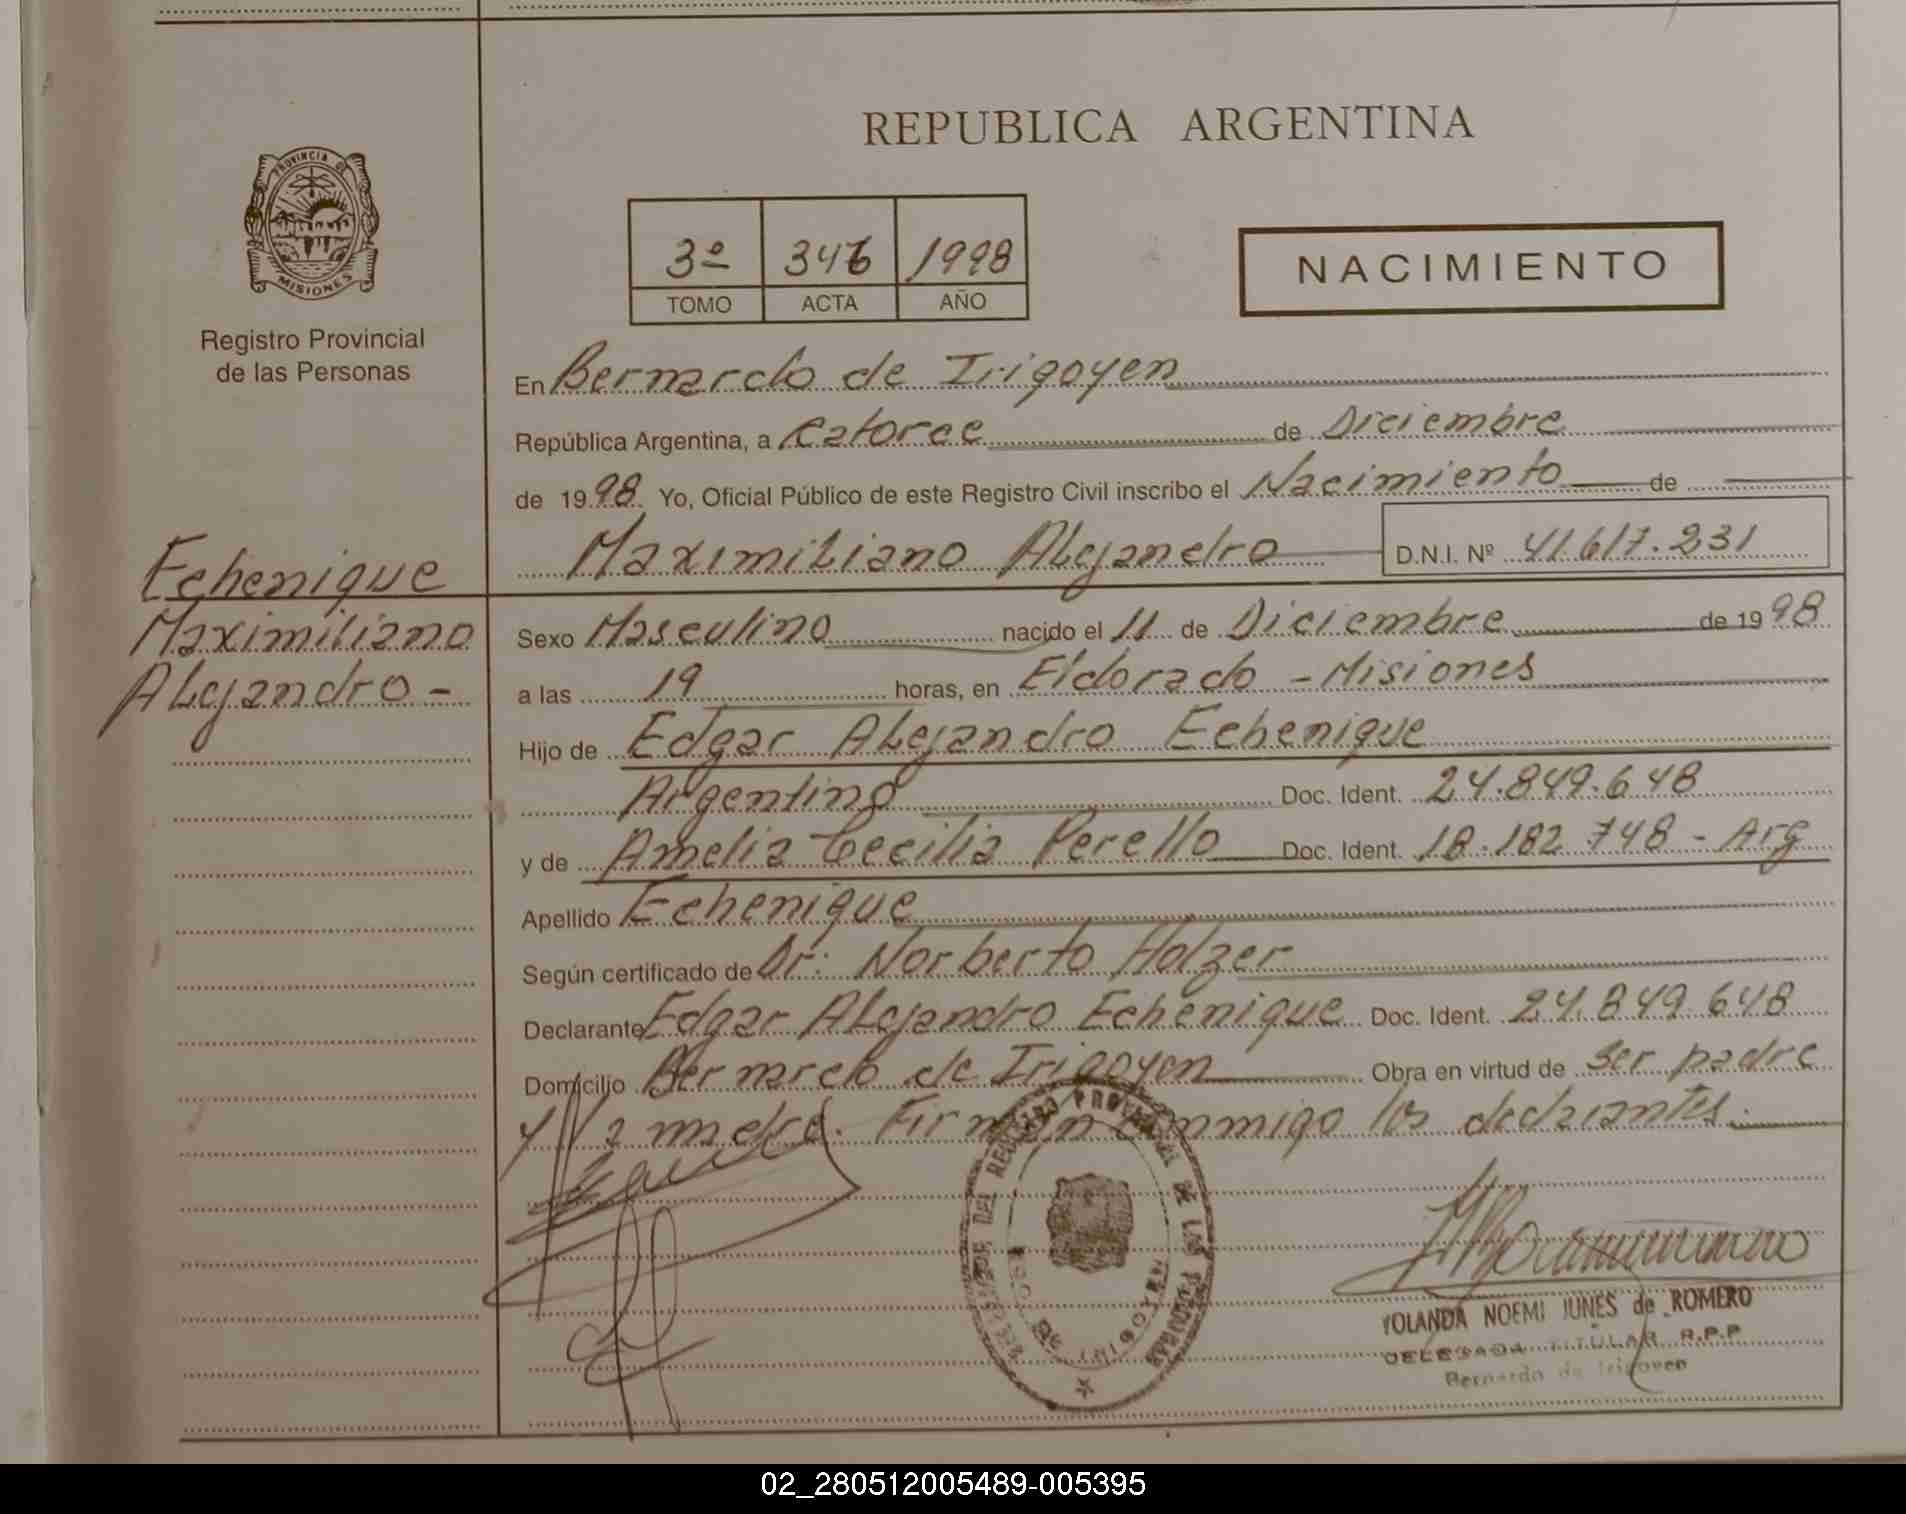 PROVINCIA DE
MISIONES
Registro Provincial
de las Personas
Echenique
Maximiliano
Alejandro -
REPUBLICA ARGENTINA
3º 346 1998
TOMO ACTA AÑO
NACIMIENTO
En Bernardo de Irigoyen
República Argentina, a Catorce de Diciembre
de 1998 Yo, Oficial Público de este Registro Civil inscribo el Nacimiento de
Maximiliano Alejandro D.N.I. Nº 41.617.231
Sexo Masculino nacido el 11 de Diciembre de 1998
a las 19 horas, en Eldorado - Misiones
Hijo de Edgar Alejandro Echenique
Argentino Doc. Ident. 24.849.648
y de Amelia Cecilia Perello Doc. Ident. 18.182 748 - Arg
Apellido Echenique
Según certificado de Dr: Norberto Holzer
Declarante Edgar Alejandro Echenique Doc. Ident. 24.849.648
Domicilio Bernardo de Irigoyen Obra en virtud de ser padre
y la madre. Firman conmigo los declarantes.
YOLANDA NOEMI JUNES de ROMERO
DELEGADA TITULAR R.P.P
Bernardo de Irigoyen
02_280512005489-005395